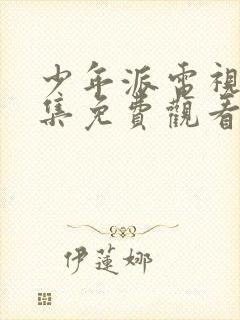 少年派電視
集免費觀看
伊蓮娜